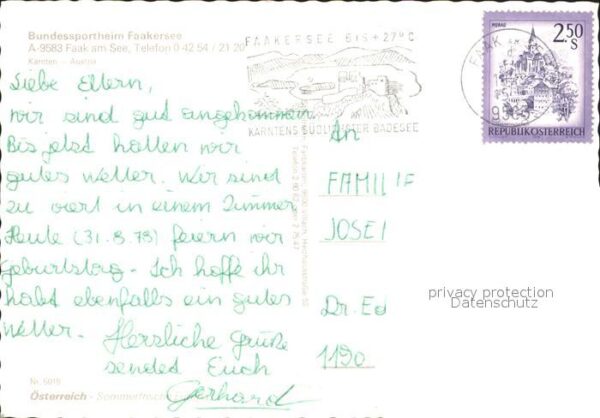 Bundessportheim Faakersee
A-9583 Faak am See, Telefon 0 42 54 / 21 20
Kärnten — Austria
FAAKERSEE bis +27°C
KÄRNTENS SÜDLICHSTER BADESEE
FAAK
MURAU
2.50
S
REPUBLIK ÖSTERREICH
Liebe Eltern,
wir sind gut angekommen
Bis jetzt hatten wir
gutes Wetter. Wir sind
zu viert in einem Zimmer
Heute (31.8.78) feiern wir
Geburtstag. Ich hoffe ihr
habt ebenfalls ein gutes
Wetter. Herzliche Grüße
sendet Euch
Gerhard
An
FAMILIE
JOSEF
Dr. Ed
1190
privacy protection
Datenschutz
Nr. 5018
Österreich - Sommerfrisch